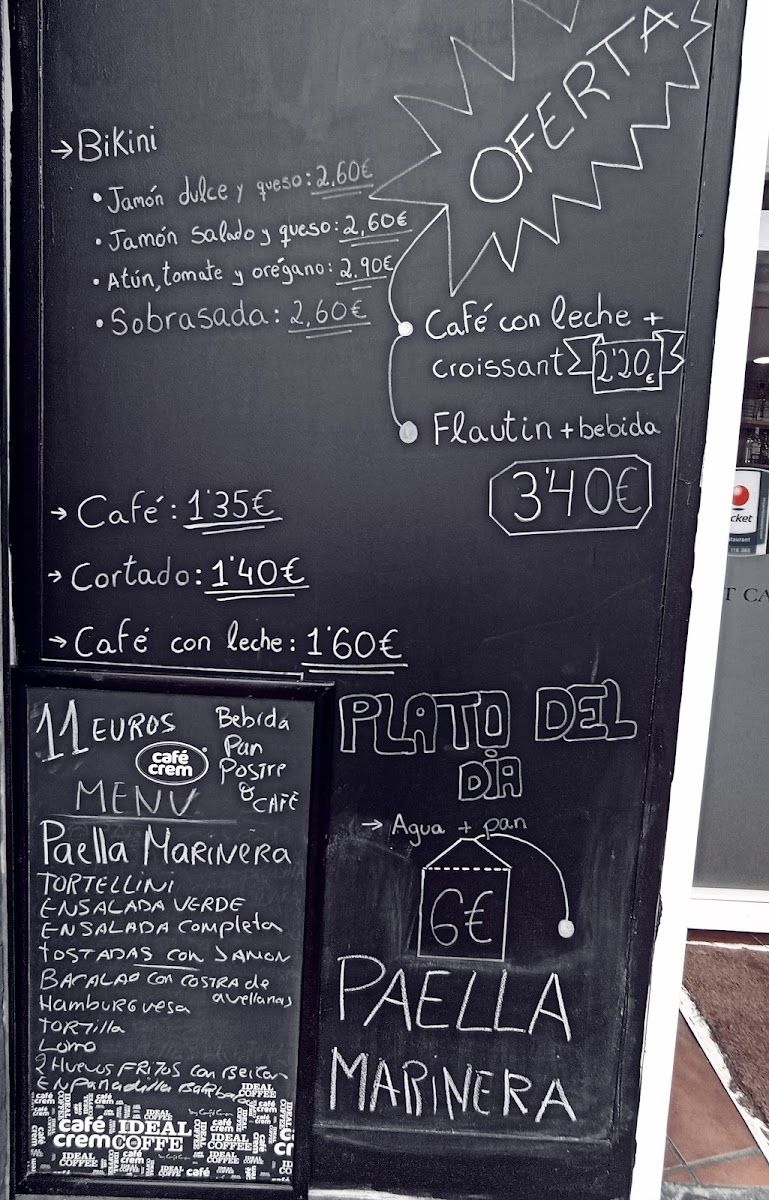 OFERTA
→Bikini
• Jamón dulce y queso: 2,60€
• Jamón salado y queso: 2,60€
• Atún, tomate y orégano: 2,90€
• Sobrasada: 2,60€
Café con leche +
croissant 2'20€
Flautin + bebida
3'40€
→ Café: 1'35€
→ Cortado: 1'40€
→ Café con leche: 1'60€
11 EUROS
café
crem
MENU
Bebida
Pan
Postre
O CAFÈ
Paella MARINERA
TORTELLINI
ENSALADA VERDE
ENSALADA Completa
TOSTADAS CON JAMON
BACALAO CON COSTRA de
avellanas
Hamburguesa
TORTILLA
LOMO
2 Huevos FRITOS con Beicon
EMPANADILLA
IDEAL
COFFEE
café
crem
IDEAL
COFFE
IDEAL
COFFEE
PLATO DEL
DÍA
→ Agua + pan
6€
PAELLA
MARINERA
cket
T CA